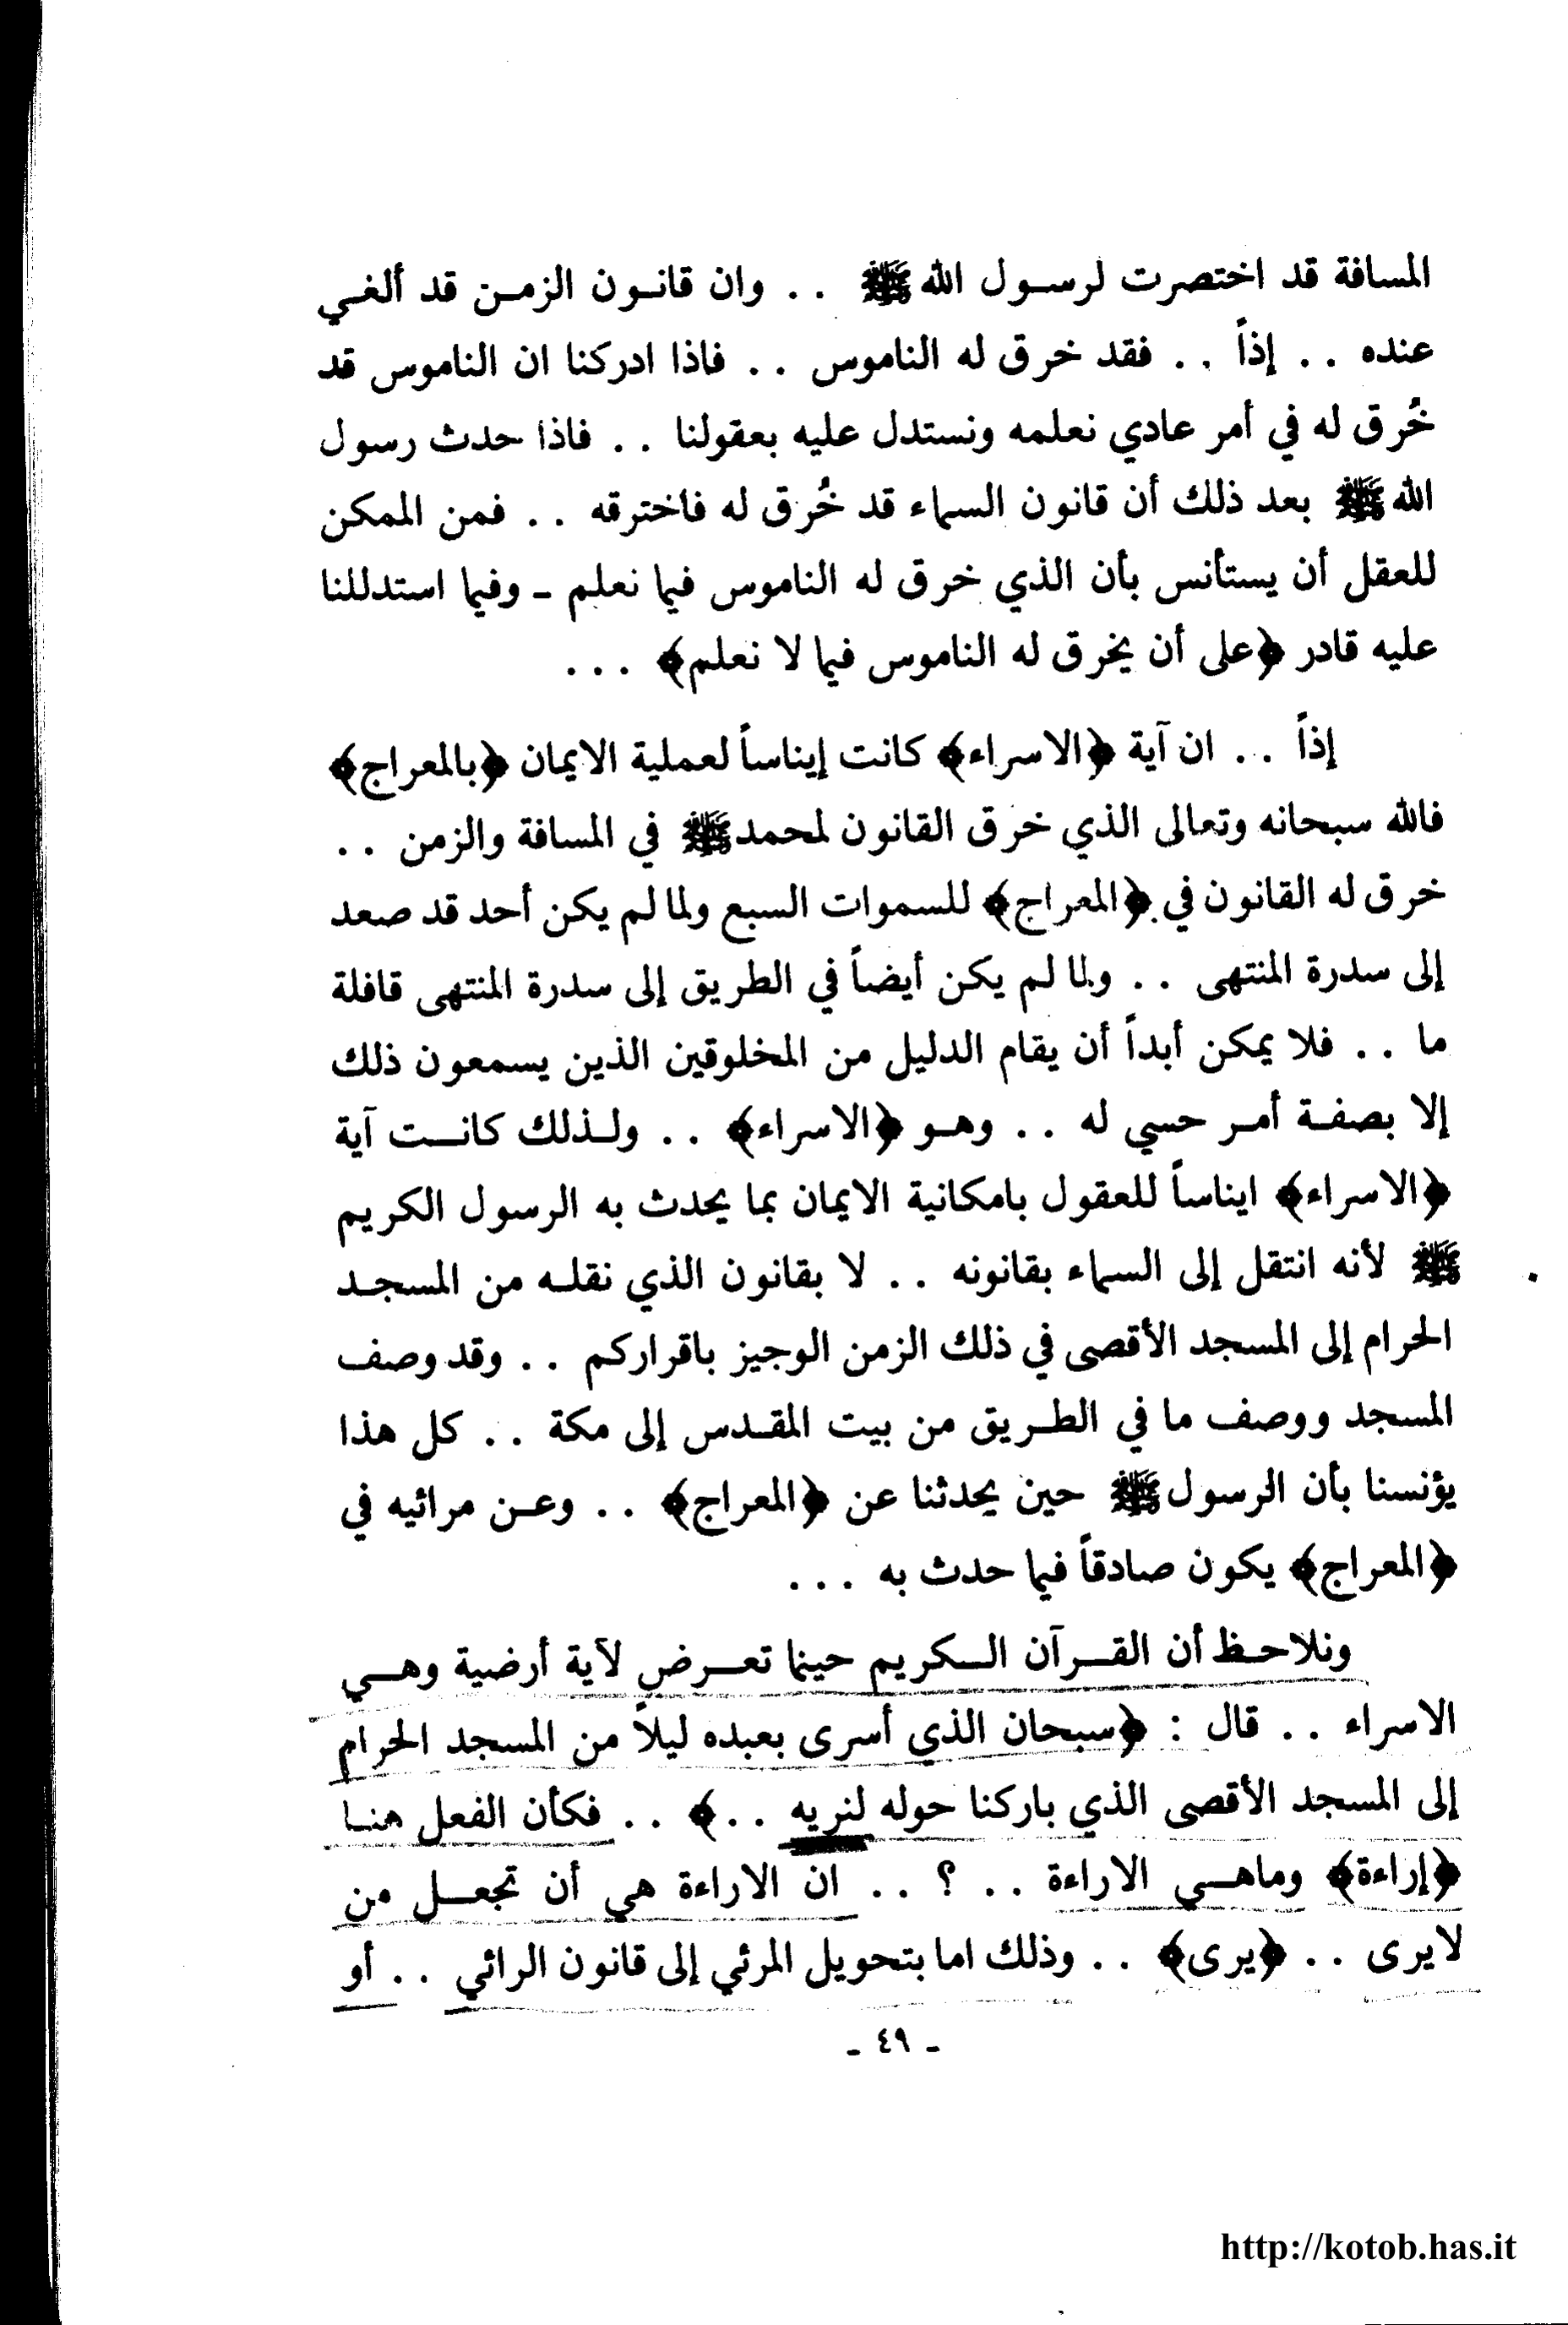 المسافة قد اختصرت لرسول الله ﷺ . . وان قانون الزمن قد ألغي
عنده . . إذاً . . فقد خرق له الناموس . . فاذا ادركنا ان الناموس قد
خُرق له في أمر عادي نعلمه ونستدل عليه بعقولنا . . فاذا حدث رسول
الله ﷺ بعد ذلك أن قانون السماء قد خُرق له فاخترقه . . فمن الممكن
للعقل أن يستأنس بأن الذي خرق له الناموس فيما نعلم - وفيما استدللنا
عليه قادر ﴿على أن يخرق له الناموس فيما لا نعلم﴾ . . .
إذاً . . ان آية ﴿الاسراء﴾ كانت إيناساً لعملية الايمان ﴿بالمعراج﴾
فالله سبحانه وتعالى الذي خرق القانون لمحمد ﷺ في المسافة والزمن . .
خرق له القانون في ﴿المعراج﴾ للسموات السبع ولما لم يكن أحد قد صعد
إلى سدرة المنتهى . . ولما لم يكن أيضاً في الطريق إلى سدرة المنتهى قافلة
ما . . فلا يمكن أبداً أن يقام الدليل من المخلوقين الذين يسمعون ذلك
إلا بصفة أمر حسي له . . وهو ﴿الاسراء﴾ . . ولذلك كانت آية
﴿الاسراء﴾ ايناساً للعقول بامكانية الايمان بما يحدث به الرسول الكريم
ﷺ لأنه انتقل إلى السماء بقانونه . . لا بقانون الذي نقله من المسجد
الحرام إلى المسجد الأقصى في ذلك الزمن الوجيز باقراركم . . وقد وصف
المسجد ووصف ما في الطريق من بيت المقدس إلى مكة . . كل هذا
يؤنسنا بأن الرسول ﷺ حين يحدثنا عن ﴿المعراج﴾ . . وعن مرائيه في
﴿المعراج﴾ يكون صادقاً فيما حدث به . . .
ونلاحظ أن القرآن الكريم حينما تعرض لآية أرضية وهي
الاسراء . . قال : ﴿سبحان الذي أسرى بعبده ليلاً من المسجد الحرام
إلى المسجد الأقصى الذي باركنا حوله لنريه . .﴾ . . فكأن الفعل هنا
﴿إراءة﴾ وماهي الاراءة . . ؟ . . ان الاراءة هي أن تجعل من
لايرى . . ﴿يرى﴾ . . وذلك اما بتحويل المرئي إلى قانون الرائي . . أو
- ٤٩ -
http://kotob.has.it